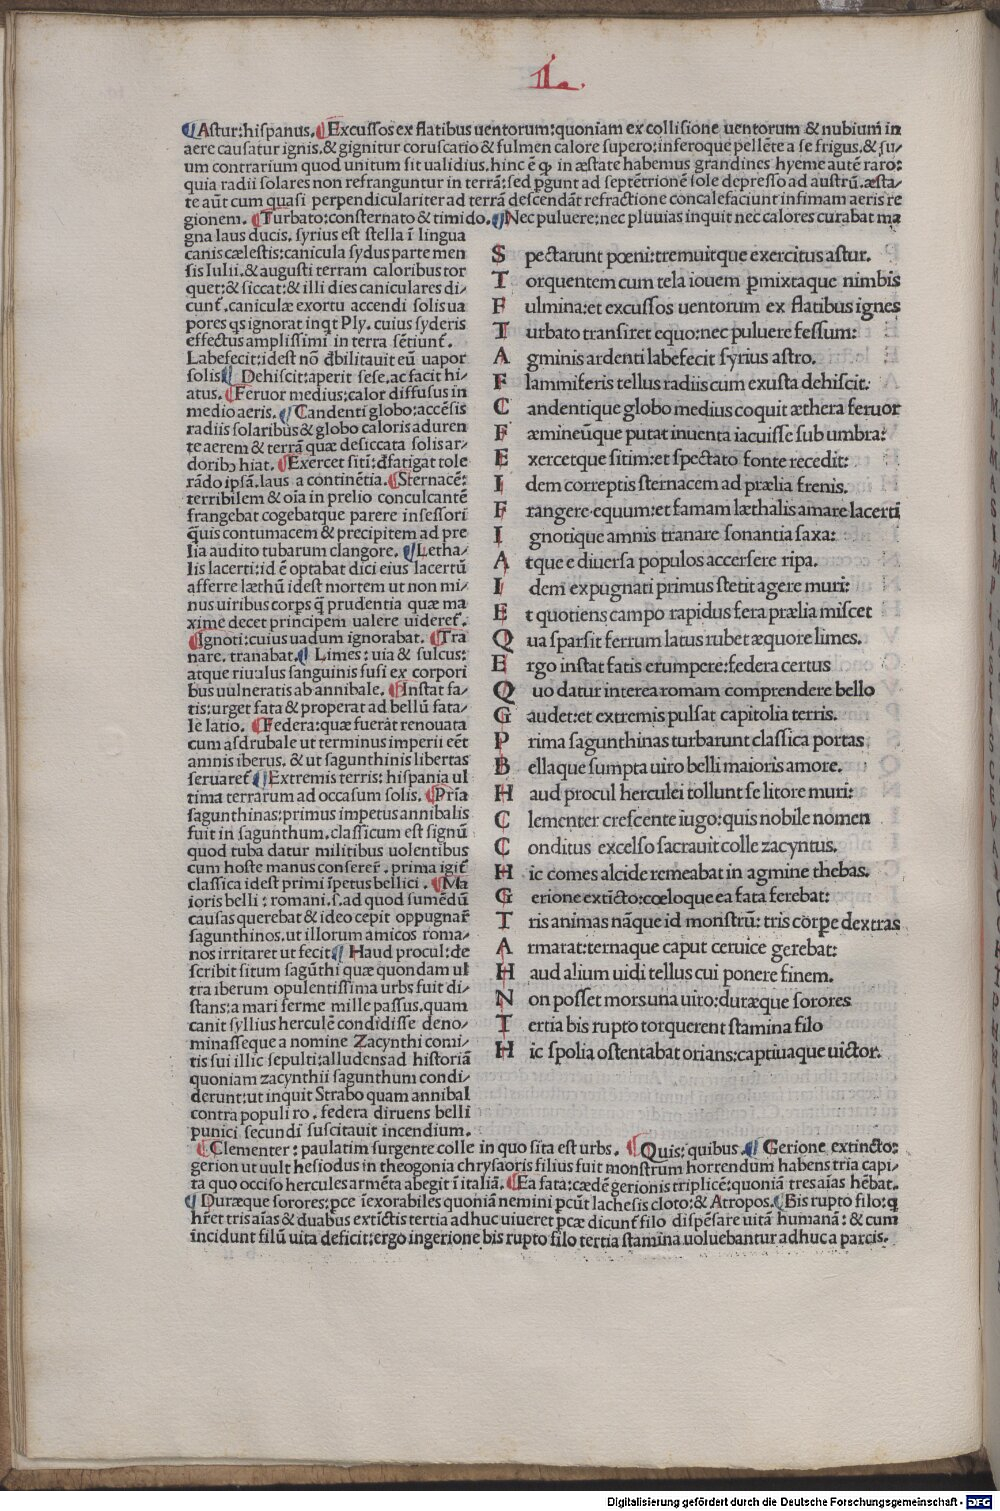 I.
Astur:hispanus. Excussos ex flatibus uentorum:quoniam ex collisione uentorum & nubium̄ in
aere causatur ignis.& gignitur coruscatio & fulmen calore supero:inferoque pellēte a se frigus.& su/
um contrarium quod unitum sit ualidius.hinc ē ꝙ in æstate habemus grandines hyeme autē raro:
quia radii solares non refranguntur in terrā:sed ꝑgunt ad septētrionē sole depresso ad austrū.æsta/
te aūt cum quasi perpendiculariter ad terrā descendāt refractione concalefaciunt infimam aeris re
gionem. Turbato:consternato & timido. Nec puluere:nec pluuias inquit nec calores curabat ma
gna laus ducis. syrius est stella ī lingua
canis cælestis:canicula sydus parte men
sis Iulii.& augusti terram caloribus tor
quet:& siccat:& illi dies caniculares di/
cunt̄. caniculæ exortu accendi solis ua
pores qs ignorat inqt Ply. cuius syderis
effectus amplissimi in terra sētiunt̄.
Labefecit:idest nō đbilitauit eū uapor
solis Dehiscit:aperit sese.ac facit hi/
atus. Feruor medius:calor diffusus in
medio aeris. Candenti globo:accēsis
radiis solaribus & globo caloris aduren
te aerem & terrā quæ desiccata solis ar/
doribꝫ hiat. Exercet sitī:đfatigat tole
rādo ipsā.laus a continētia. Sternacē:
terribilem & oīa in prelio conculcantē
frangebat cogebatque parere insessori
q̄uis contumacem & precipitem ad pre
lia audito tubarum clangore. Letha/
lis lacerti:id ē optabat dici eius lacertū
afferre læthū idest mortem ut non mi/
nus uiribus corꝑs q̄ prudentia quæ ma
xime decet principem ualere uideret̄.
Ignoti:cuius uadum ignorabat. Tra
nare. tranabat. Limes: uia & sulcus:
atque riuulus sanguinis fusi ex corpori
bus uulneratis ab annibale. Instat fa/
tis:urget fata & properat ad bellū fata/
le latio. Federa:quæ fuerāt renouata
cum asdrubale ut terminus imperii eēt
amnis iberus. & ut sagunthinis libertas
seruaret̄ Extremis terris: hispania ul
tima terrarum ad occasum solis. Prīa
sagunthinas:primus impetus annibalis
fuit in sagunthum.classicum est signū
quod tuba datur militibus uolentibus
cum hoste manus conserer̄. prima igit̄
classica idest primi īpetus bellici. Ma
ioris belli: romani.s.ad quod sumēdū
causas querebat & ideo cepit oppugnar̄
sagunthinos.ut illorum amicos roma/
nos irritaret ut fecit Haud procul:de
scribit situm sagūthi quæ quondam ul
tra iberum opulentissima urbs fuit di/
stans:a mari ferme mille passus.quam
canit syllius herculē condidisse deno/
minasseque a nomine Zacynthi comi/
tis sui illic sepulti:alludens ad historiā
quoniam zacynthii sagunthum condi/
derunt:ut inquit Strabo quam annibal
contra populi ro. federa diruens belli
punici secundi suscitauit incendium.
S pectarunt pœni:tremuitque exercitus astur.
T orquentem cum tela iouem ꝑmixtaque nimbis
F ulmina:et excussos uentorum ex flatibus ignes
T urbato transiret equo:nec puluere fessum:
A gminis ardenti labefecit syrius astro.
F lammiferis tellus radiis cum exusta dehiscit:
C andentique globo medius coquit æthera feruor
F æmineūque putat inuenta iacuisse sub umbra:
E xercetque sitim:et spectato fonte recedit:
I dem correptis sternacem ad prælia frenis.
F rangere equum:et famam læthalis amare lacerti
I gnotique amnis tranare sonantia saxa:
A tque e diuersa populos accersere ripa.
I dem expugnati primus stetit agere muri:
E t quotiens campo rapidus fera prælia miscet
Q ua sparsit ferrum latus rubet æquore limes.
E rgo instat fatis erumpere:federa certus
Q uo datur interea romam comprendere bello
G audet:et extremis pulsat capitolia terris.
P rima sagunthinas turbarunt classica portas
B ellaque sumpta uiro belli maioris amore.
H aud procul herculei tollunt se litore muri:
C lementer crescente iugo:quis nobile nomen
C onditus excelso sacrauit colle zacyntus.
H ic comes alcide remeabat in agmine thebas.
G erione extīcto:cœloque ea fata ferebat:
T ris animas nāque id monstrū: tris corpe dextras
A rmarat:ternaque caput ceruice gerebat:
H aud alium uidi tellus cui ponere finem.
N on posset mors una uiro:duræque sorores
T ertia bis rupto torquerent stamina filo
H ic spolia ostentabat orians:captiuaque uictor.
Clementer: paulatim surgente colle in quo sita est urbs. Quis: quibus. Gerione extincto:
gerion ut uult hesiodus in theogonia chrysaoris filius fuit monstrum horrendum habens tria capi/
ta quo occiso hercules armēta abegit ī italiā. Ea fata:cædē gerionis triplicē:quoniā tres aīas hēbat.
Duræque sorores:ꝑce īexorabiles quoniā nemini ꝑcūt lachesis cloto:& Atropos. Bis rupto filo:q
hr̄et tris aīas & duabus extīctis tertia adhuc uiueret ꝑcæ dicunt̄ filo dispēsare uitā humanā: & cum
īncidunt filū uita deficit:ergo in gerione bis rupto filo tertia stamina uoluebantur adhuc a parcis.
Digitalisierung gefördert durch die Deutsche Forschungsgemeinschaft - DFG